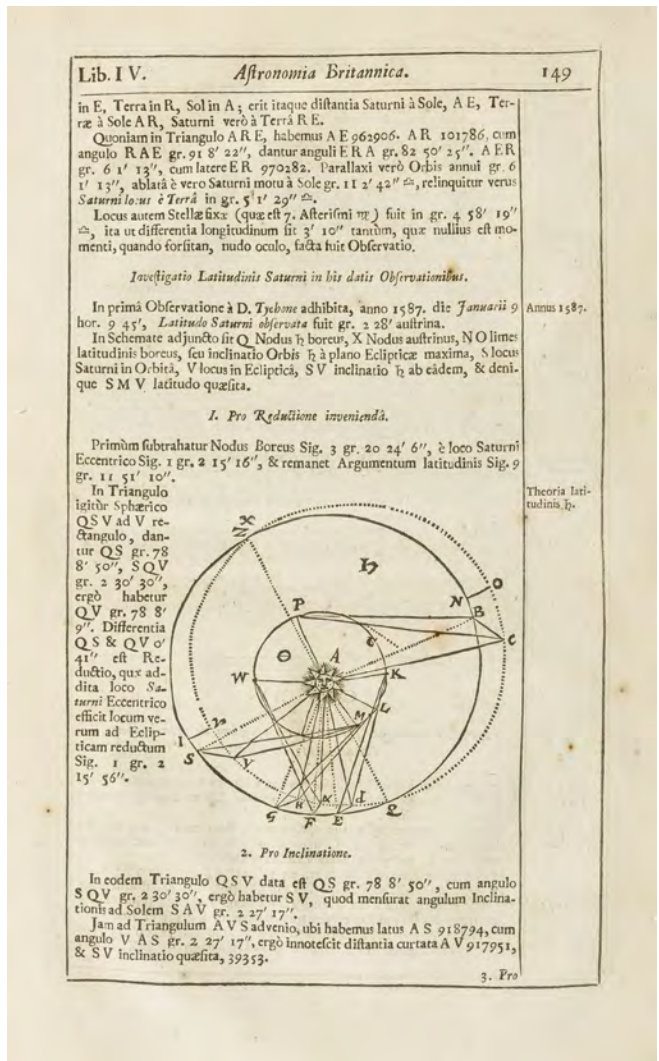 Lib. I V.
Aſtronomia Britannica.
149
in E, Terra in R, Sol in A; erit itaque diſtantia Saturni à Sole, A E, Ter-
ræ à Sole A R, Saturni verò à Terrâ R E.
Quoniam in Triangulo A R E, habemus A E 962906. A R 101786, cum
angulo R A E gr. 91 8′ 22″, dantur anguli E R A gr. 82 50′ 25″. A E R
gr. 6 1′ 13″, cum latere E R 970282. Parallaxi verò Orbis annui gr. 6
1′ 13″, ablatâ è vero Saturni motu à Sole gr. 11 2′ 42″ ♎, relinquitur verus
Saturni locus è Terrâ in gr. 5 1′ 29″ ♎.
Locus autem Stellæ fixæ (quæ eſt 7. Aſteriſmi ♍) fuit in gr. 4 58′ 19″
♎, ita ut differentia longitudinum ſit 3′ 10″ tantùm, quæ nullius eſt mo-
menti, quando forſitan, nudo oculo, facta fuit Obſervatio.
Inveſtigatio Latitudinis Saturni in his datis Obſervationibus.
In primâ Obſervatione à D. Tychone adhibita, anno 1587. die Januarii 9
hor. 9 45′, Latitudo Saturni obſervata fuit gr. 2 28′ auſtrina.
Annus 1587.
In Schemate adjuncto ſit Q Nodus ♄ boreus, X Nodus auſtrinus, N O limes
latitudinis boreus, ſeu inclinatio Orbis ♄ à plano Eclipticæ maxima, S locus
Saturni in Orbitâ, V locus in Eclipticâ, S V inclinatio ♄ ab eâdem, & deni-
que S M V latitudo quæſita.
I. Pro Reductione inveniendâ.
Primùm ſubtrahatur Nodus Boreus Sig. 3 gr. 20 24′ 6″, è loco Saturni
Eccentrico Sig. 1 gr. 2 15′ 16″, & remanet Argumentum latitudinis Sig. 9
gr. 11 51′ 10″.
Theoria lati-
tudinis ♄.
In Triangulo
igitùr Sphærico
QSV ad V re-
ctangulo, dan-
tur QS gr. 78
8′ 50″, SQV
gr. 2 30′ 30″,
ergò habetur
QV gr. 78 8′
9″. Differentia
QS & QV 0′
41″ eſt Re-
ductio, quæ ad-
dita loco Sa-
turni Eccentrico
efficit locum ve-
rum ad Eclip-
ticam reductum
Sig. 1 gr. 2
15′ 56″.
Z X
♄
O
N
B
P
C
C
Θ
A
W
K
L
M
I
S
V
G
F
E
d
Q
2. Pro Inclinatione.
In eodem Triangulo QSV data eſt QS gr. 78 8′ 50″, cum angulo
S QV gr. 2 30′ 30″, ergò habetur S V, quod menſurat angulum Inclina-
tionis ad Solem S A V gr. 2 27′ 17″.
Jam ad Triangulum A V S advenio, ubi habemus latus A S 918794, cum
angulo V A S gr. 2 27′ 17″, ergò innoteſcit diſtantia curtata A V 917951,
& S V inclinatio quæſita, 39353.
3. Pro